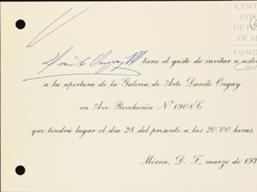 CENT
tiene el gusto de invitar a usted
a la apertura de la Galería de Arte Danilo Ongay
en Ave. Revolución Nº 1908 C
que tendrá lugar el día 28 del presente a las 20:00 horas.
México, D. F., marzo de 197